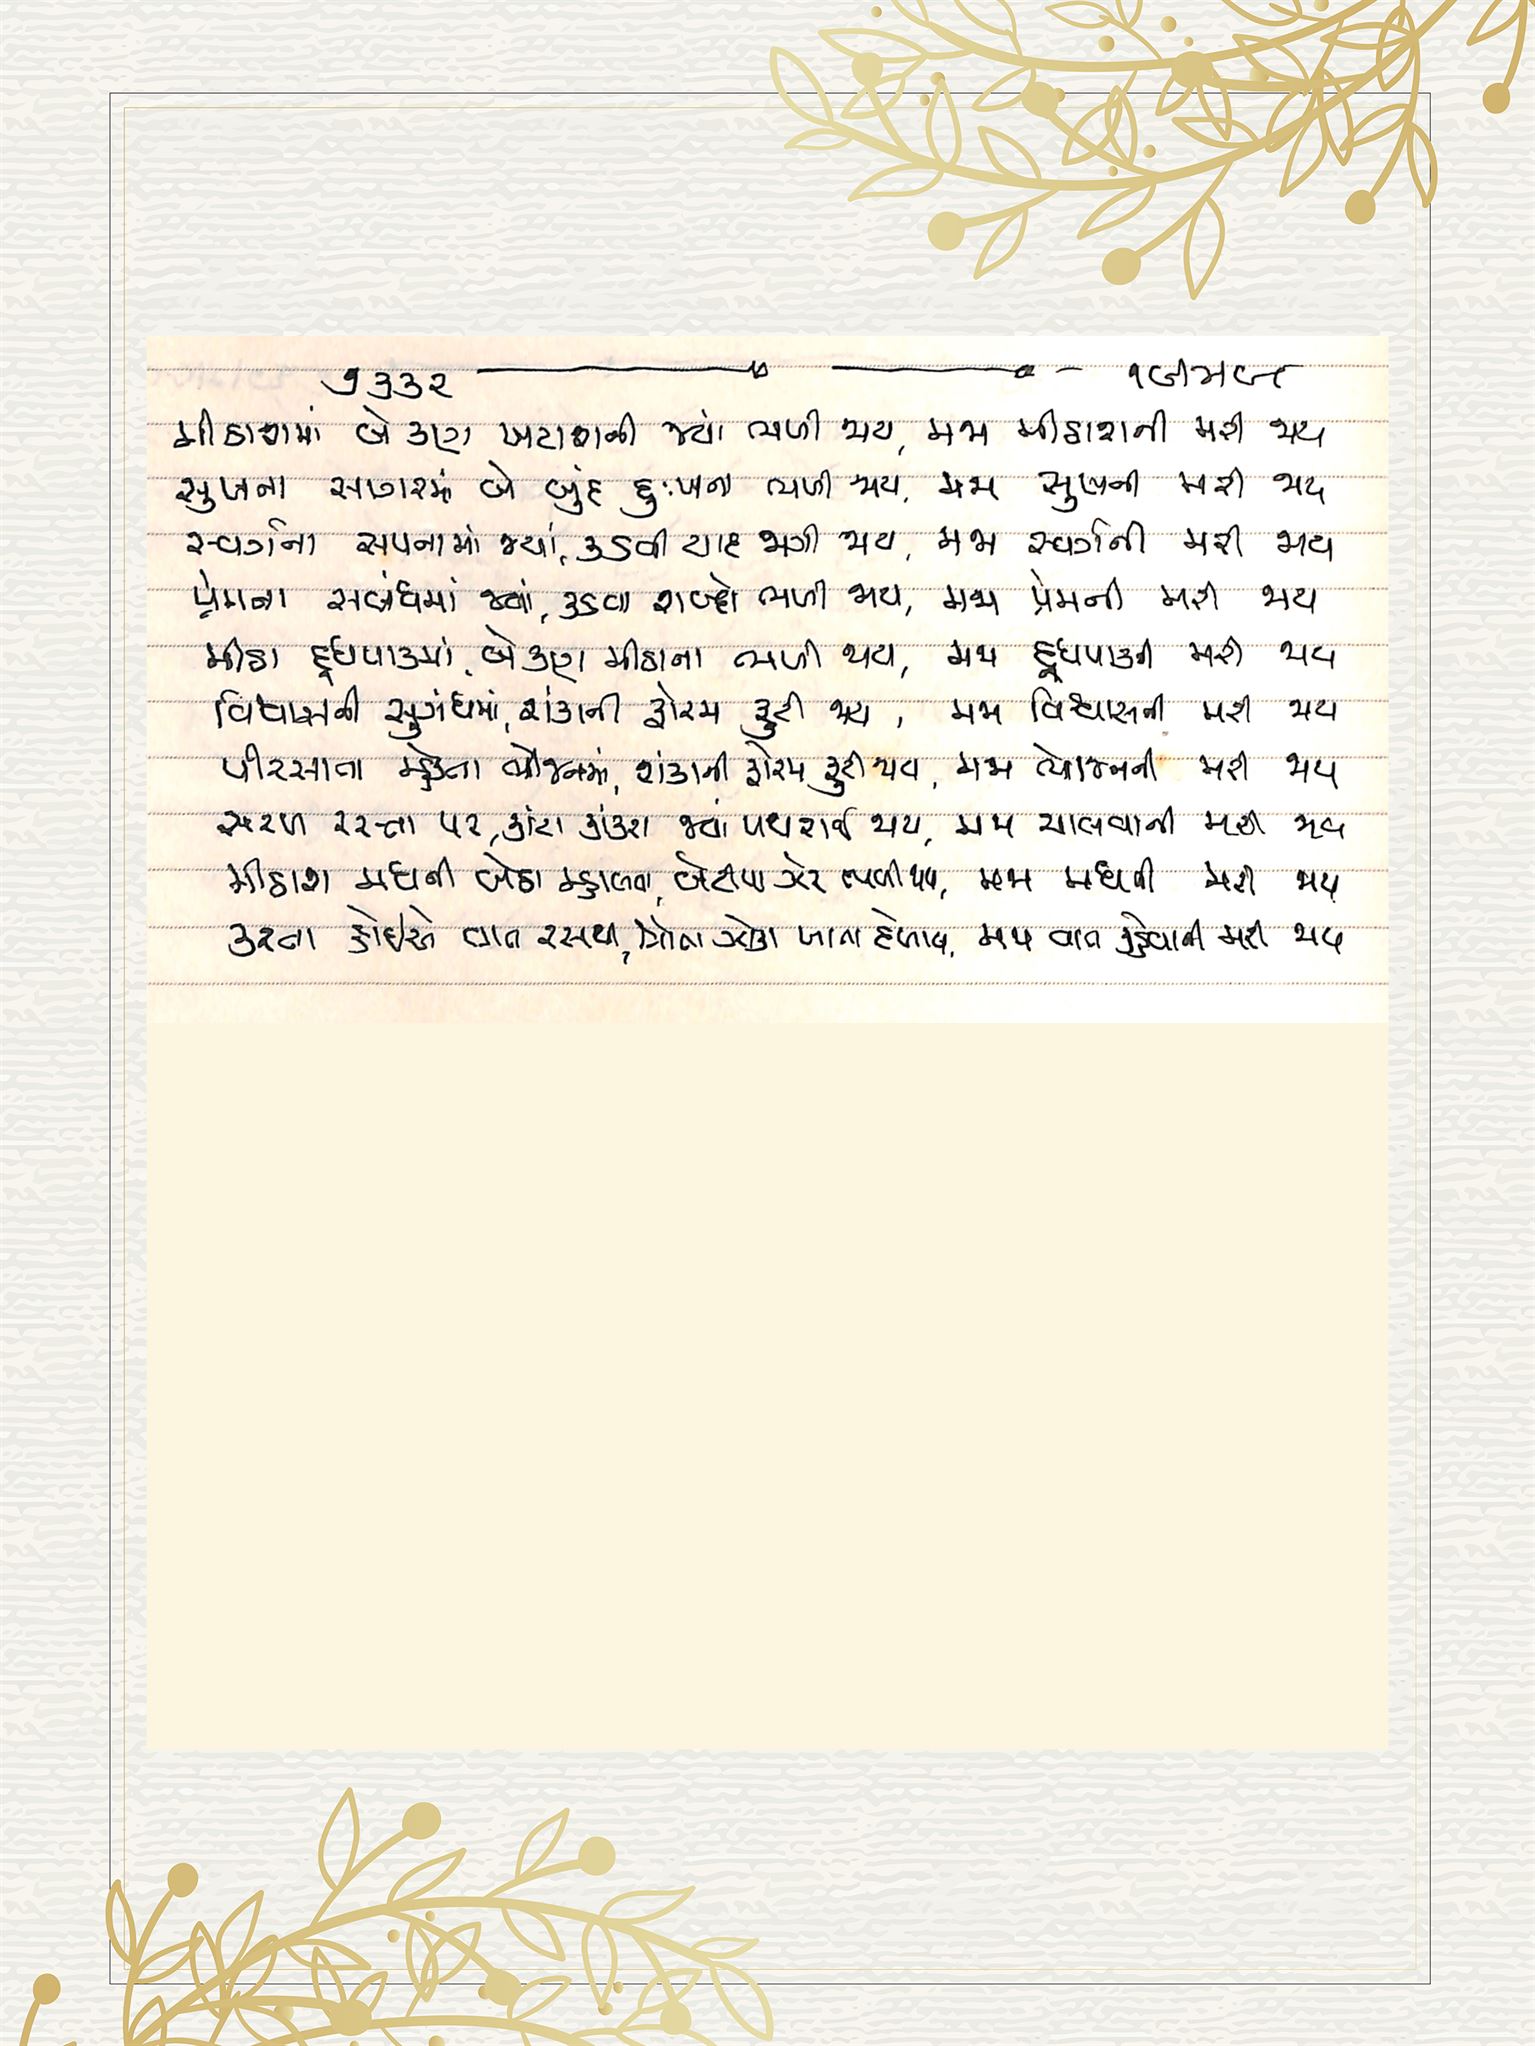 ૭૩૩૨
મીઠાશમાં બે કણ ખટાશની જ્યાં ભળી જાય, મજા મીઠાશની મરી જાય
સુખના સાગરમાં બે બુંદ દુઃખના ભળી જાય, મજા સુખની મરી જાય
સ્વર્ગના સપનામાં જ્યાં, કડવી યાદ જાગી જાય, મજા સ્વર્ગની મરી જાય
પ્રેમના સબંધમાં જ્યાં, કડવા શબ્દો ભળી જાય, મજા પ્રેમની મરી જાય
મીઠા દૂધપાકમાં, બે કણ મીઠાના ભળી જાય, મજા દૂધપાકની મરી જાય
વિશ્વાસની સુગંધમાં, શંકાની ફોરમ ફુટી જાય, મજા વિશ્વાસની મરી જાય
પીરસાતા ભોજનમાં, શંકાની ફોરમ ફુટી જાય, મજા ભોજનની મરી જાય
સરળ રસ્તા પર, કાંટા કાંકરા જ્યાં પથરાઈ જાય, મજા ચાલવાની મરી જાય
મીઠાશ મધની બેઠા માણવા, ઝેર ભળી જાય, મજા મધની મરી જાય
કરતા કોઈએ વાત રસથી, ઝોકા ખાતા દેખાય, મજા વાત કહેવાની મરી જાય